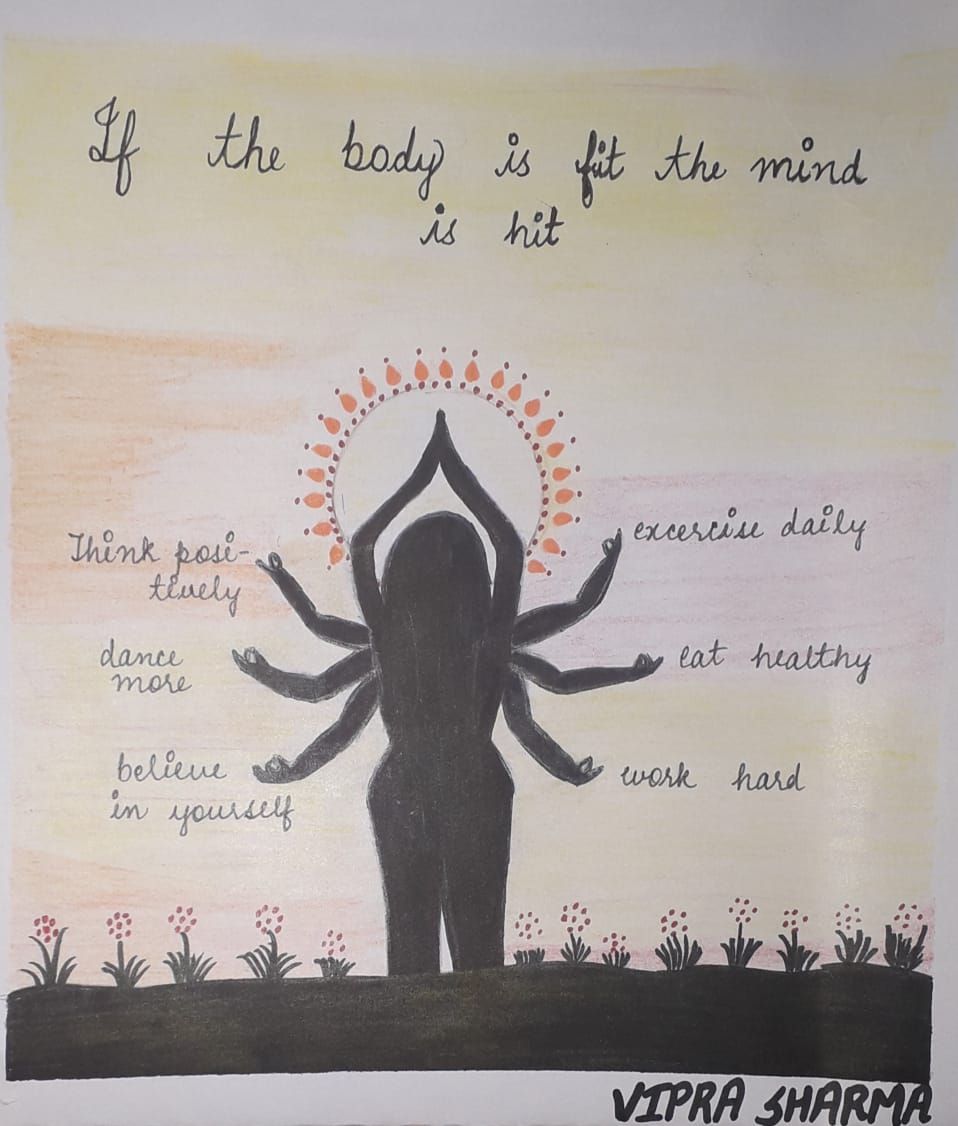 If the body is fit the mind
is hit
Think posi-
tively
excercise daily
dance
more
eat healthy
believe
in yourself
work hard
VIPRA SHARMA